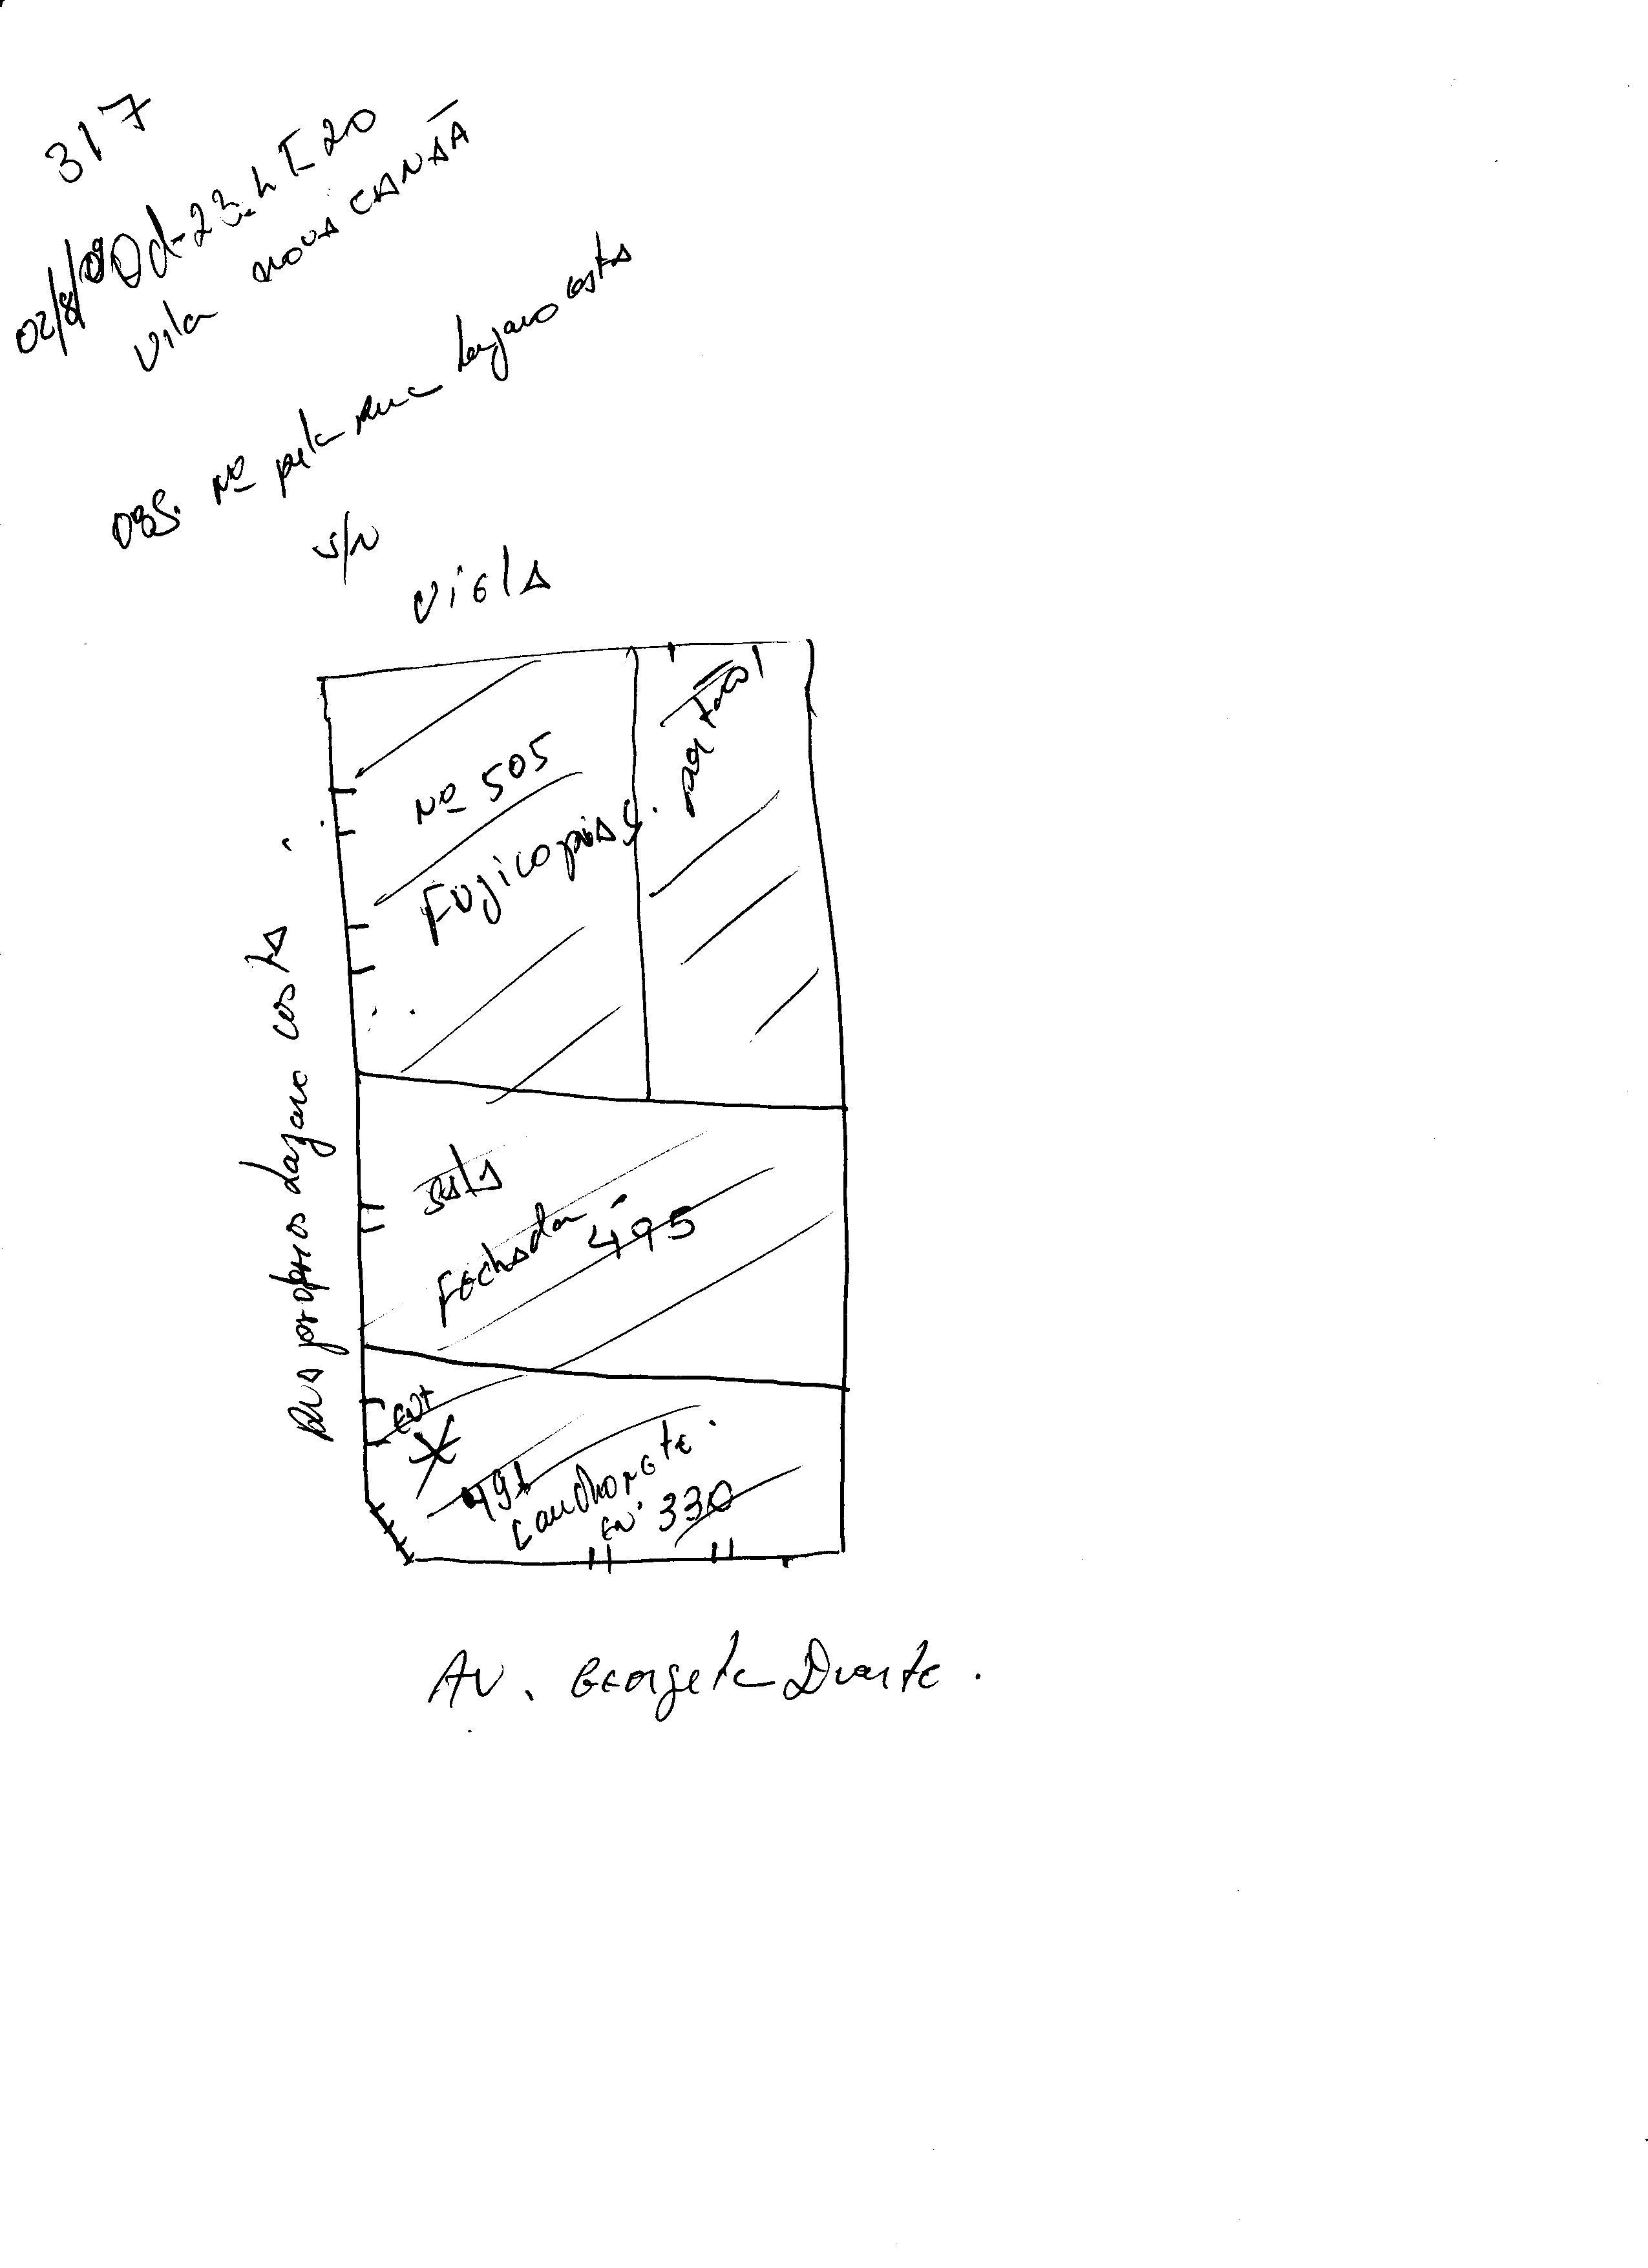 317
02/8/00 Qd-23. Lt-20
Vila NOVA CANAÃ
OBS. Nº pela Rua Lazaro costa
S/N
VIELA
Nº 505
Fujicopias.
portão
RUA Lazaro costa
sala
Fechada
495
ENT
491
Lanchonete.
Nº 330
AV. Georgeta Duarte.